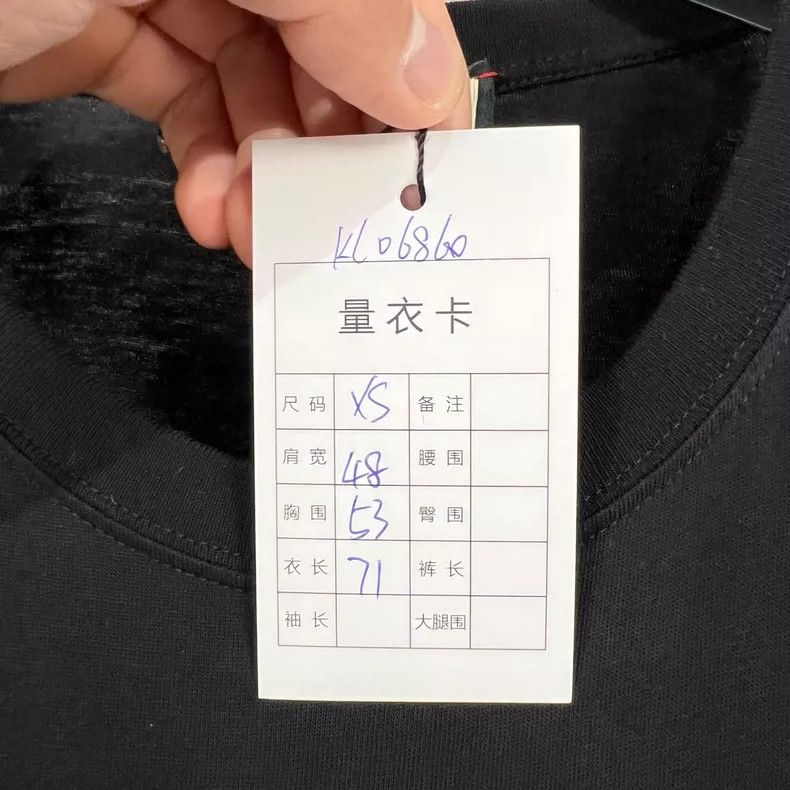 KL06860
量衣卡
尺码 XS 备注
肩宽 48 腰围
胸围 53 臀围
衣长 71 裤长
袖长 大腿围